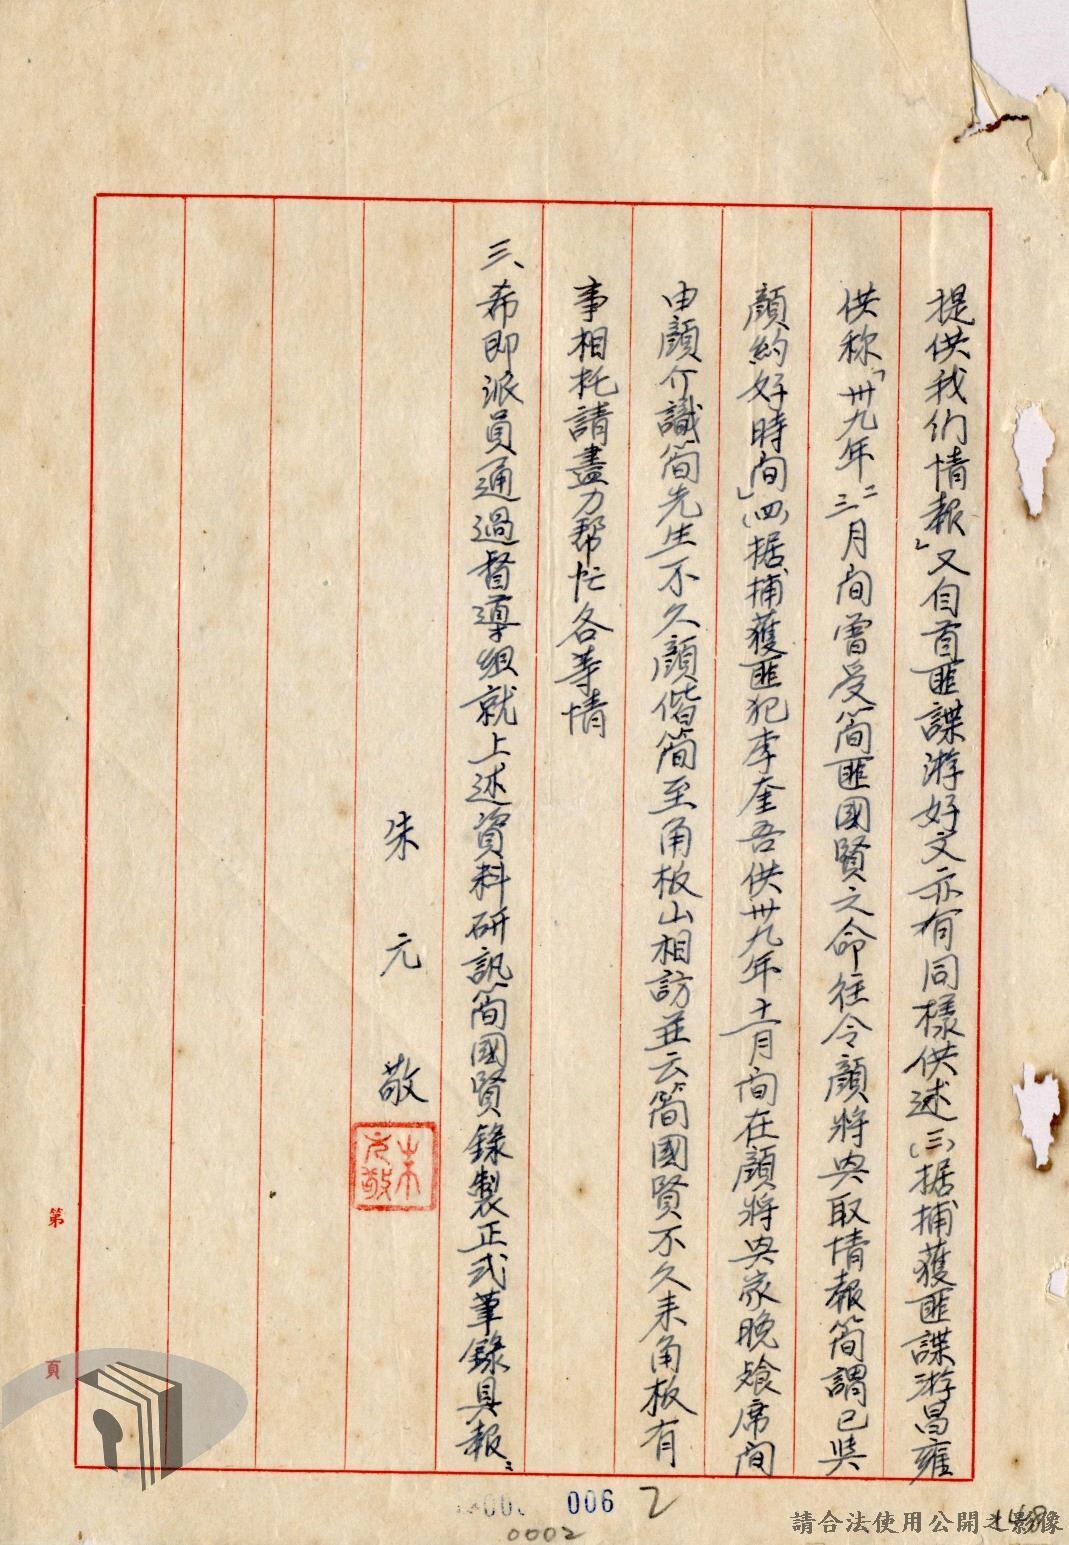 提供我们情報」又自首匪諜游好文亦有同樣供述(三)据捕獲匪諜游昌雍
供称「卅九年二三月间曾受简匪國賢之命往令顔將央取情報简謂已與
顔約好時间」(四)据捕獲匪犯李奎吾供卅九年十一月间在顔將央家晚飧席间
由顔介識简先生不久顔偕简至角板山相訪並云简國賢不久来角板有
事相托請盡力帮忙各等情
三、希即派員通過督導組就上述資料研訊简國賢錄製正式筆錄具報
朱元敬
朱元敬
第
頁
006
2
0002
請合法使用公開之影像